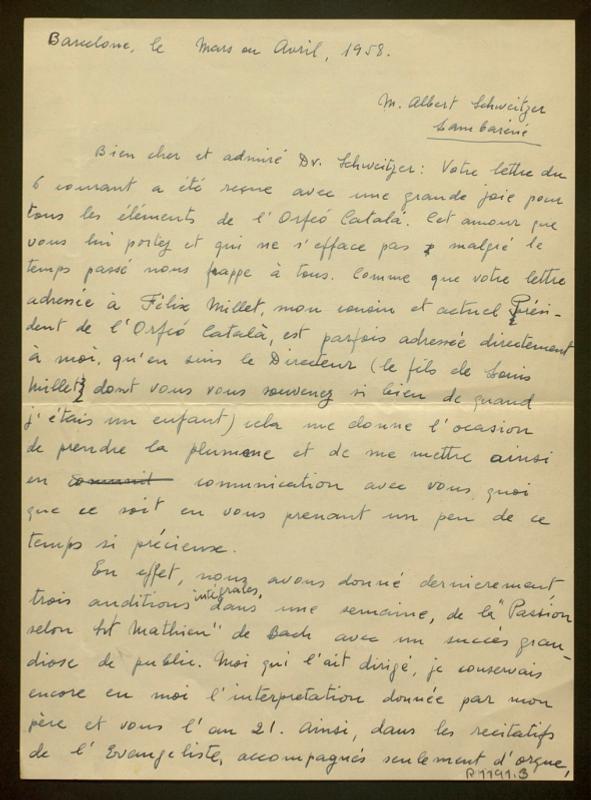 Barcelone, le Mars ou Avril, 1958.
M. Albert Schweitzer
Lambaréné
Bien cher et admiré Dr. Schweitzer: Votre lettre du
6 courant a été reçue avec une grande joie pour
tous les éléments de l'Orfeó Català. Cet amour que
vous lui portez et qui ne s'efface pas malgré le
temps passé nous frappe à tous. Comme que votre lettre
adressée à Félix Millet, mon cousin et actuel Prési-
dent de l'Orfeó Català, est parfois adressée directement
à moi, qu'en suis le Directeur (le fils de Louis
Millet dont vous vous souvenez si bien de quand
j'étais un enfant) cela me donne l'ocasion
de prendre la plume et de me mettre ainsi
en comunication avec vous, quoi
que ce soit en vous prenant un peu de ce
temps si précieuse.
En effet, nous avons donné dernierement,
trois auditions intégrales, dans une semaine, de la "Passion
selon St Mathieu" de Bach avec un succés gran-
diose de public. Moi qui l'ait dirigé, je conservais
encore en moi l'interpretation donnée par mon
père et vous l'an 21. Ainsi, dans les recitatifs
de l'Evangeliste, accompagnés seulement d'orgue,
R1191.3